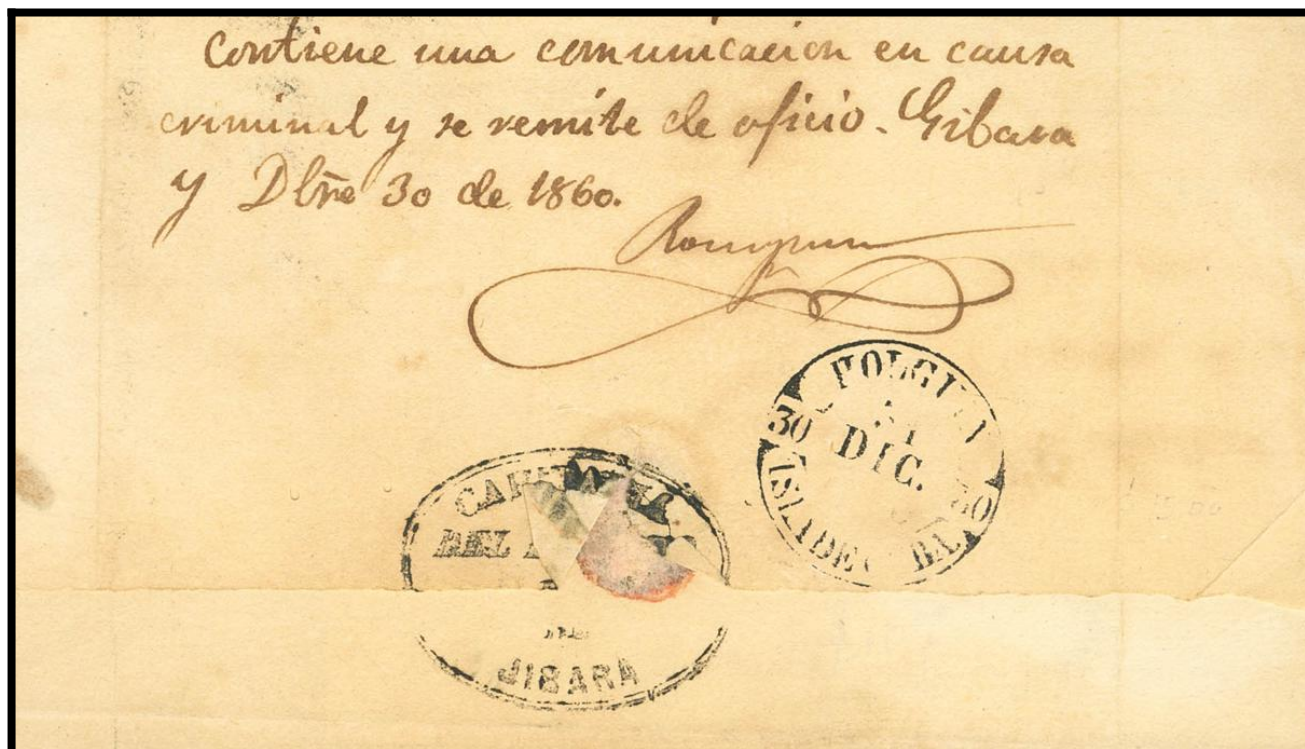 Contiene una comunicacion en causa
criminal y se remite de oficio. Gibara
y Dbre 30 de 1860.
HOLGUIN
30 30
DIC.
ISLA DE BA.
DEL
JIBARA